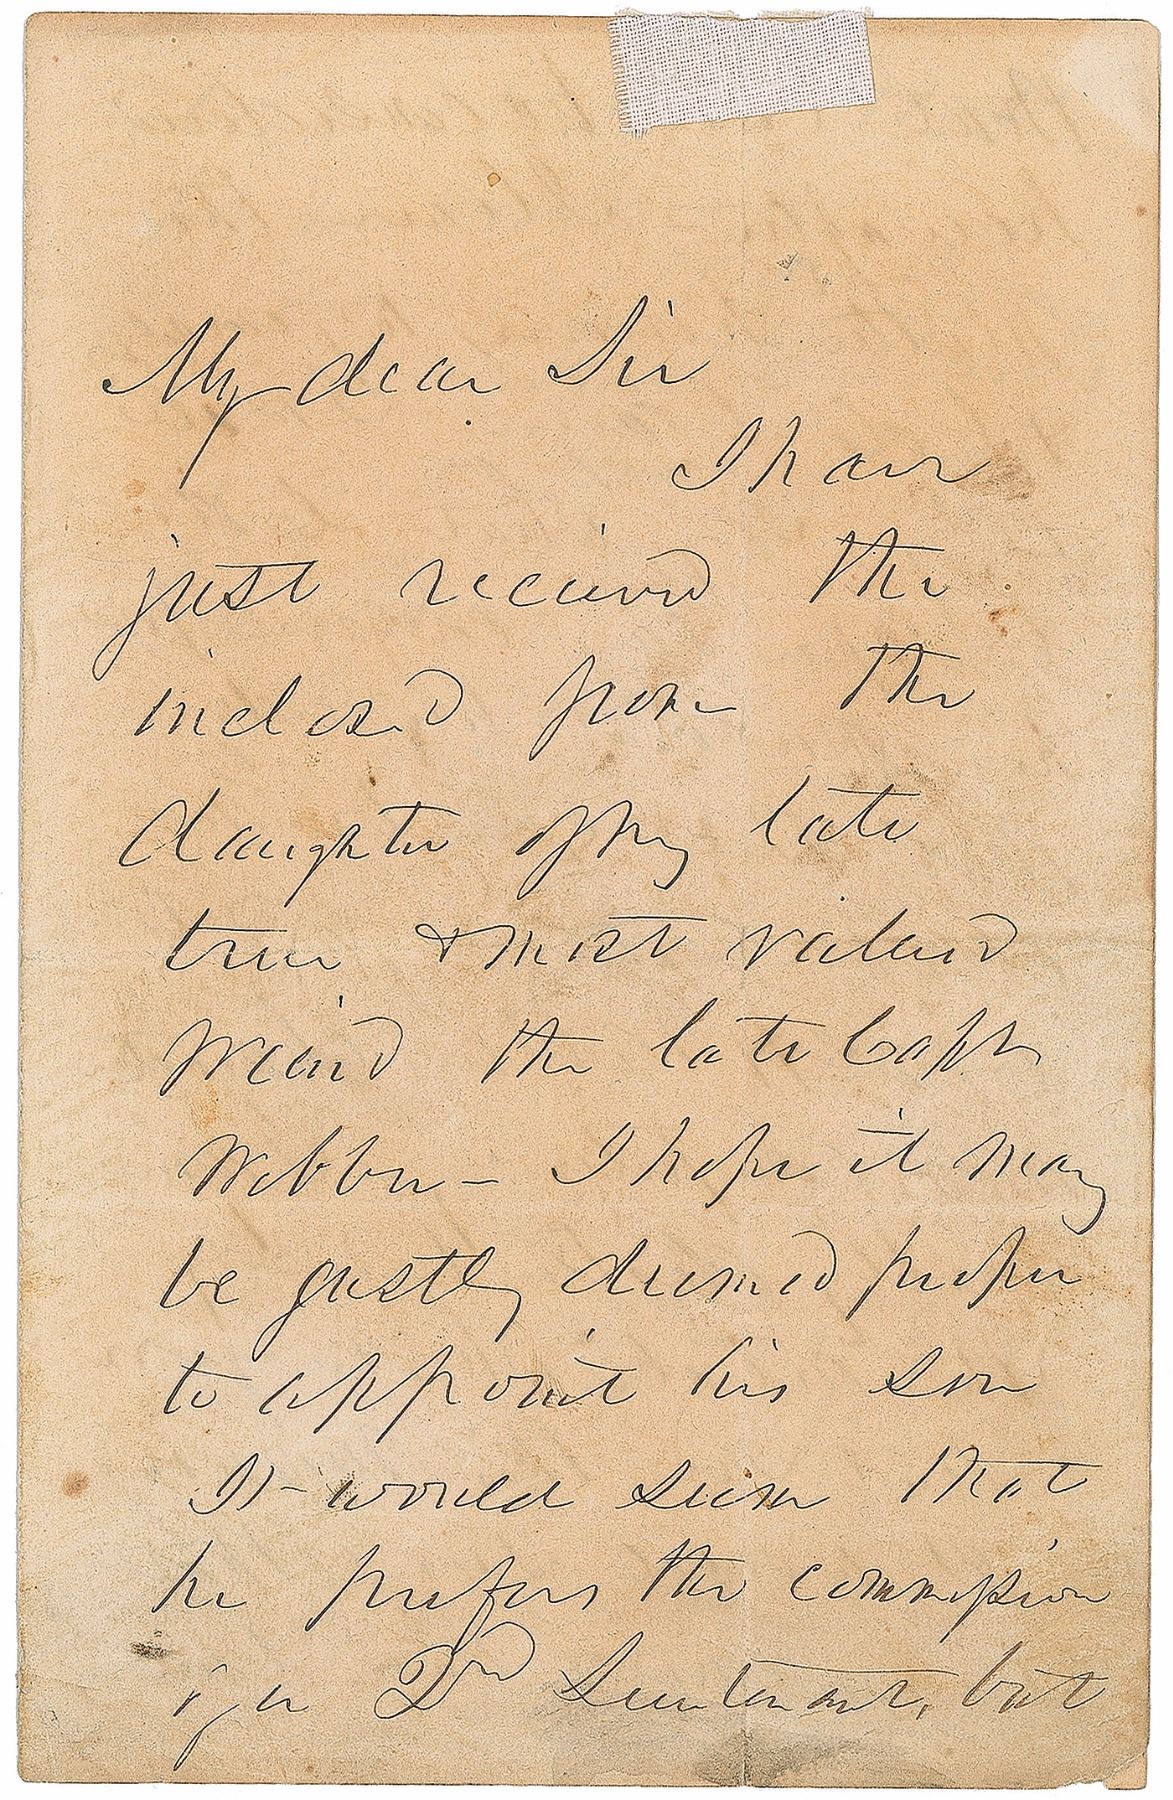 My dear Sir
I have
just received the
inclosed from the
daughter of my late
true & most valued
friend the late Capt
Webber – I hope it may
be justly deemed proper
to appoint his son
It would seem that
he prefers the commission
of a 2nd Lieutenant, but